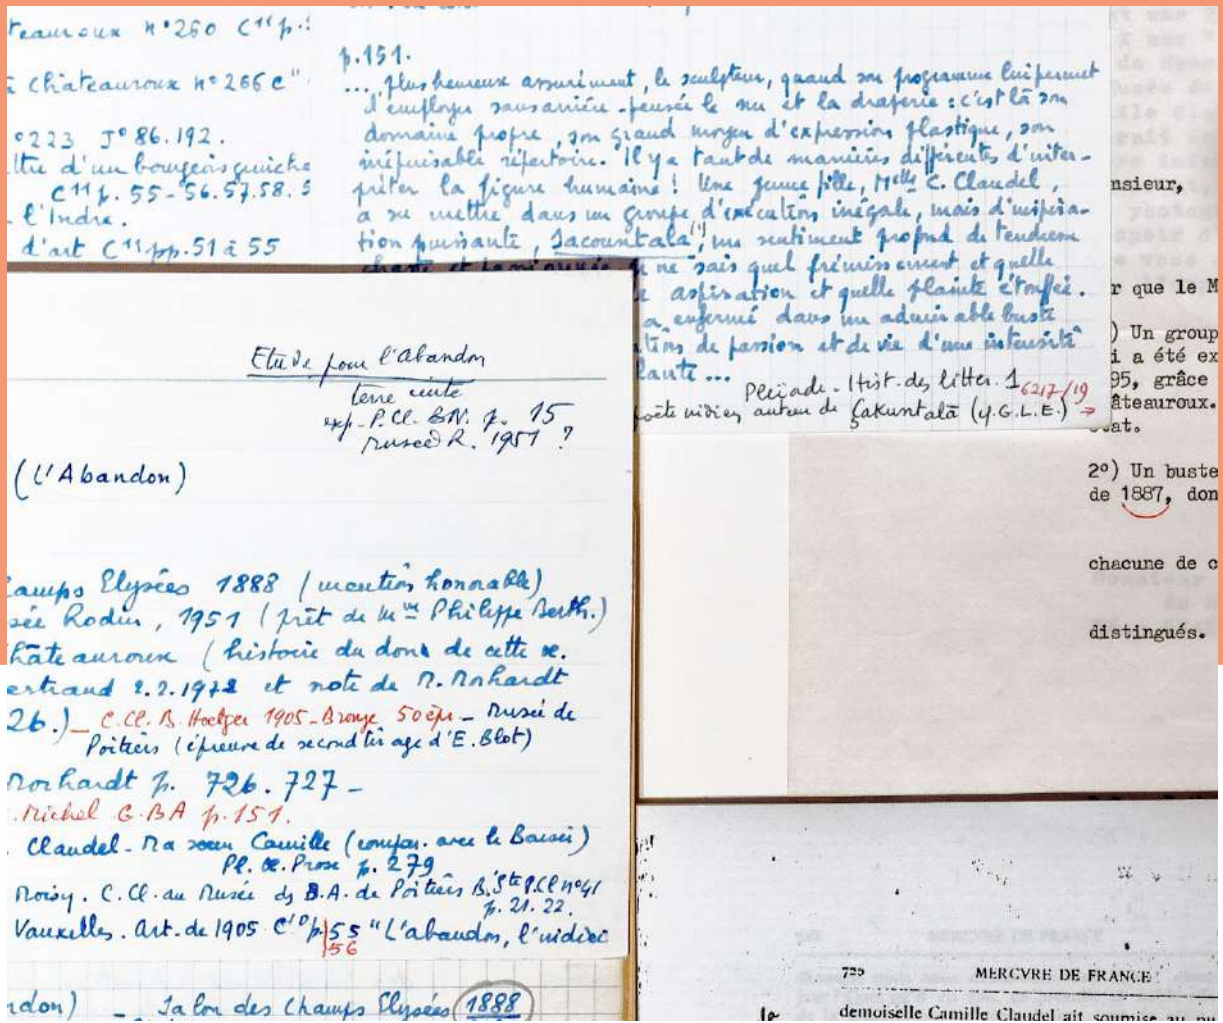 teauroux n°260 C¹¹ p.
Châteauroux n° 266 C"
°223 J° 86.192.
ttre d'un bourgeois guiche
C¹¹ p. 55-56.57.58.5
l'Indre.
d'art C¹¹ pp.51 à 55
p.151.
... plus heureux assurément, le sculpteur, quand son programme lui permet
d'employer sans arrière-pensée le nu et la draperie : c'est là son
domaine propre, son grand moyen d'expression plastique, son
inépuisable répertoire. Il y a tant de manières différentes d'inter-
prêter la figure humaine ! Une jeune fille, Melle C. Claudel,
a su mettre dans un groupe d'exécution inégale, mais d'inspira-
tion puissante, Sacountala (1), un sentiment profond de tendresse
chaste et je ne sais quel frémissement et quelle
aspiration et quelle plainte étouffée.
a enfermé dans un admirable buste
tions de passion et de vie d'une intensité
lante ...
Pleïade. Hist. des litter. 1 6217/19
poète indien auteur de Çakuntalā (cf. G.L.E.) →
Etude pour l'Abandon
terre cuite
exp. P. Cl. B.N. p. 15
Musée R. 1951 ?
(L'Abandon)
amps Elysées 1888 (mention honorable)
sée Rodin, 1951 (prêt de Mme Philippe Berth.)
hâteauroux (histoire du don de cette œ.
ertrand 2.2.1972 et note de M. Morhardt
26.) - C. Cl. B. Hoetger 1905 - Bronze 50 épr - Musée de
Poitiers (épreuve de second tirage d'E. Blot)
Morhardt p. 726.727 -
. Michel G.BA p.151.
. Claudel - Ma sœur Camille (compar. avec le Baiser)
Pl. œ. Prose p. 279
Moisy. C. Cl. au Musée ds B.A. de Poitiers B. Sté P.Cl n°41
p. 21. 22.
Vauxelles. Art. de 1905 C¹⁰ p. 55 "L'abandon, l'indici
56
ndon) - Salon des Champs Elysées 1888
nsieur,
r que le M
) Un group
i a été ex
95, grâce
âteauroux.
état.
2°) Un buste
de 1887, don
chacune de c
distingués.
MERCVRE DE FRANCE
demoiselle Camille Claudel ait soumise au pu